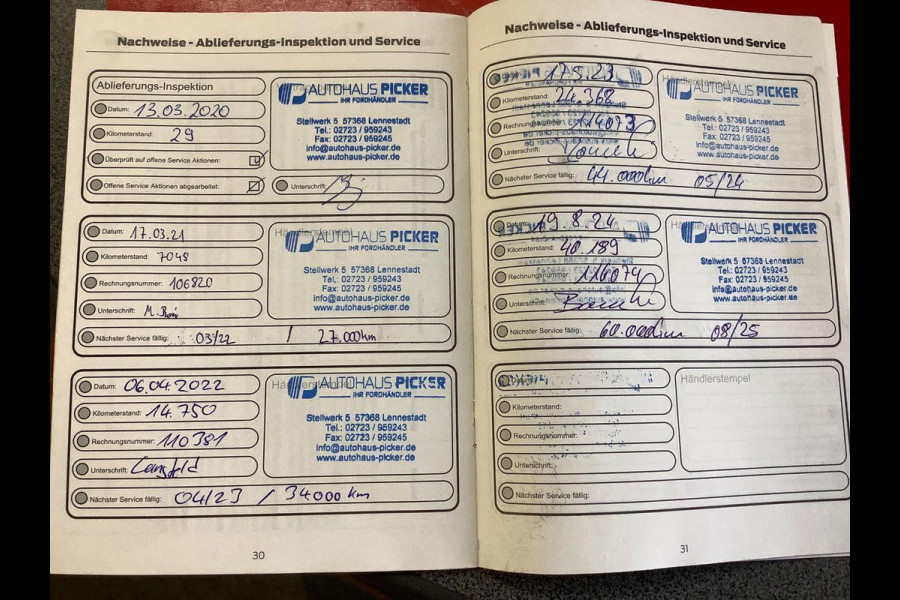 Nachweise - Ablieferungs-Inspektion und Service
Ablieferungs-Inspektion
Datum: 13.03.2020
Kilometerstand: 29
Überprüft auf offene Service Aktionen:
Offene Service Aktionen abgearbeitet:
Unterschrift:
AUTOHAUS PICKER
IHR FORDHÄNDLER
Stellwerk 5 57368 Lennestadt
Tel.: 02723 / 959243
Fax: 02723 / 959245
info@autohaus-picker.de
www.autohaus-picker.de
Datum: 17.03.21
Kilometerstand: 7048
Rechnungsnummer: 106820
Unterschrift:
Nächster Service fällig: 03/22 / 27.000km
Händlerstempel
AUTOHAUS PICKER
IHR FORDHÄNDLER
Stellwerk 5 57368 Lennestadt
Tel.: 02723 / 959243
Fax: 02723 / 959245
info@autohaus-picker.de
www.autohaus-picker.de
Datum: 06.04.2022
Kilometerstand: 14.750
Rechnungsnummer: 110381
Unterschrift:
Nächster Service fällig: 04/23 / 34000 km
Händlerstempel
AUTOHAUS PICKER
IHR FORDHÄNDLER
Stellwerk 5 57368 Lennestadt
Tel.: 02723 / 959243
Fax: 02723 / 959245
info@autohaus-picker.de
www.autohaus-picker.de
30
Nachweise - Ablieferungs-Inspektion und Service
17.5.23
Kilometerstand: 24.368
Rechnungsnummer: 114073
Unterschrift:
Nächster Service fällig: 44.000km 05/24
Händlerstempel
AUTOHAUS PICKER
IHR FORDHÄNDLER
Stellwerk 5 57368 Lennestadt
Tel.: 02723 / 959243
Fax: 02723 / 959245
info@autohaus-picker.de
www.autohaus-picker.de
Datum: 19.8.24
Kilometerstand: 40.189
Rechnungsnummer: 116074
Unterschrift:
Nächster Service fällig: 60.000km 08/25
AUTOHAUS PICKER
IHR FORDHÄNDLER
Stellwerk 5 57368 Lennestadt
Tel.: 02723 / 959243
Fax: 02723 / 959245
info@autohaus-picker.de
www.autohaus-picker.de
Kilometerstand:
Rechnungsnummer:
Unterschrift:
Nächster Service fällig:
Händlerstempel
31